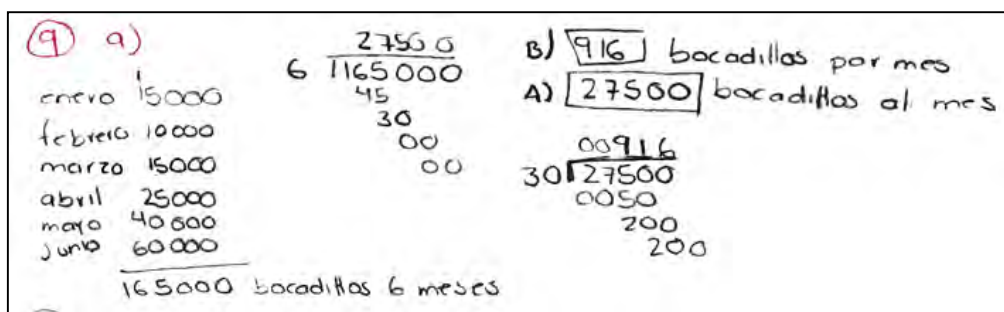 9 a)
enero 15000
febrero 10000
marzo 15000
abril 25000
mayo 40000
junio 60000
165000 bocadillos 6 meses
27500
6 165000
45
30
00
00
B) 916 bocadillos por mes
A) 27500 bocadillos al mes
00916
30 27500
0050
200
200